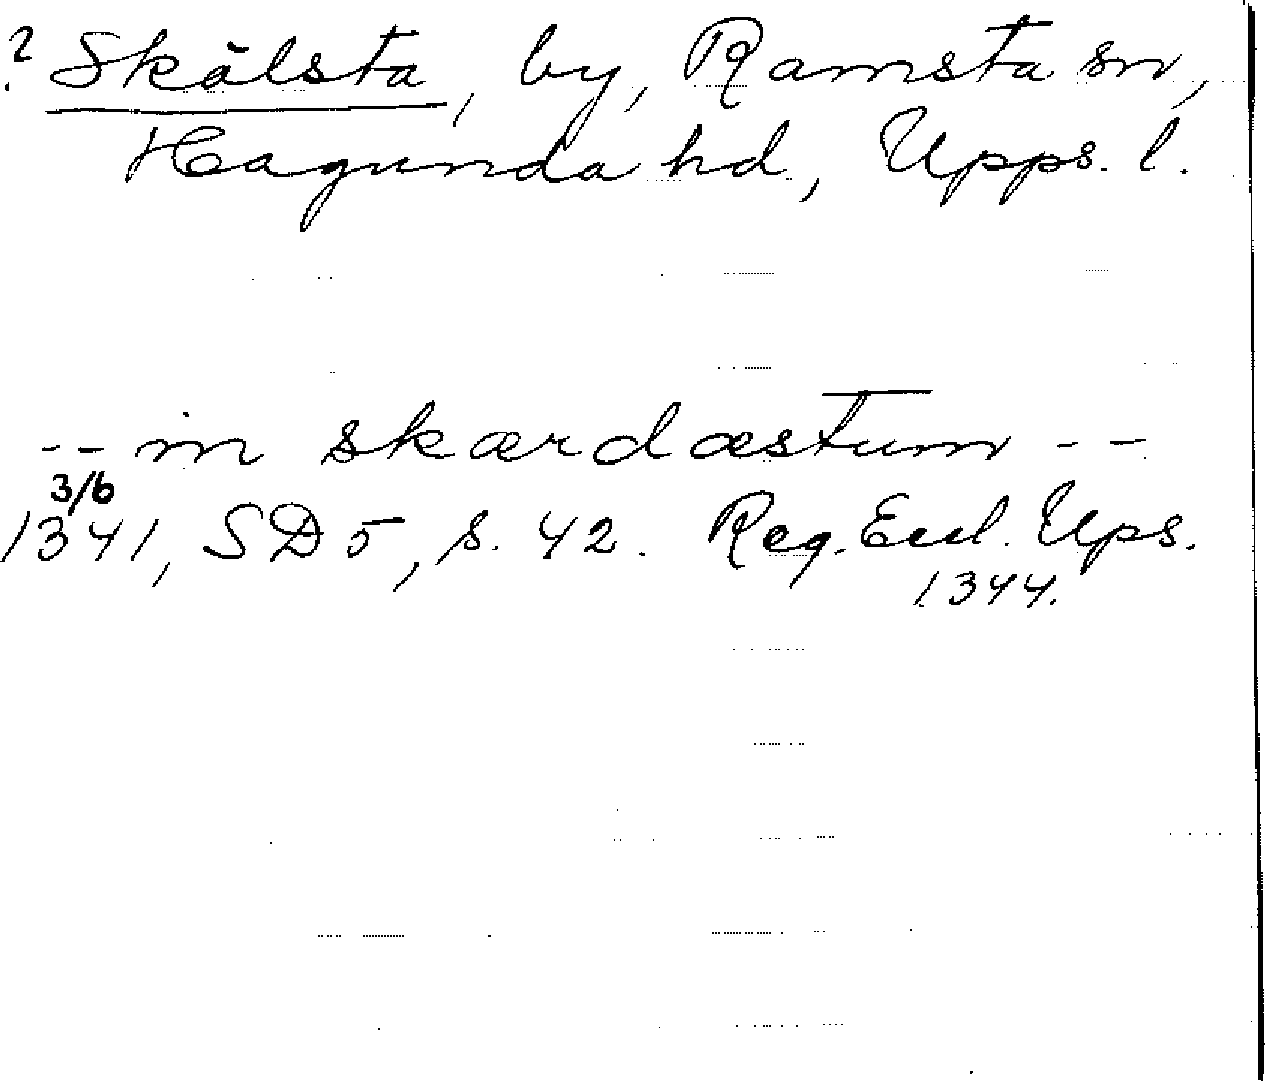 ? Skälsta, by, Ramsta sn,
Hagunda hd, Upps. l.
-- in skærdæstum --
3/6
1341, SD 5, s. 42. Reg. Eccl. Ups.
1344.